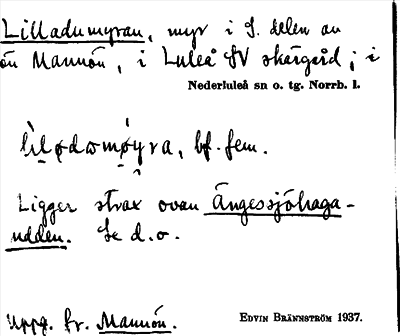 Lilladumyran, myr i S. delen av
ön Mannön, i Luleå SV skärgård; i
Nederluleå sn o. tg. Norrb. l.
bf. fem.
Ligger strax ovan Ängessjöhaga-
udden. Se d.o.
Uppg. fr. Mannön.
EDVIN BRÄNNSTRÖM 1937.